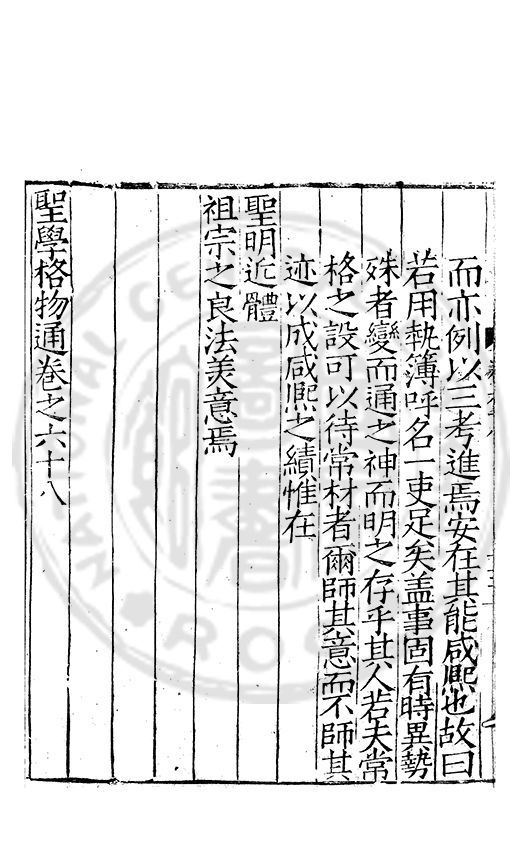 而亦例以三考進焉安在其能咸熈也故曰
若用執簿呼名一吏足矣盖事固有時異勢
殊者變而通之神而明之存乎其人若夫常
格之設可以待常材者爾師其意而不師其
迹以成咸熈之績惟在
聖明近體
祖宗之良法美意焉
聖學格物通卷之六十八